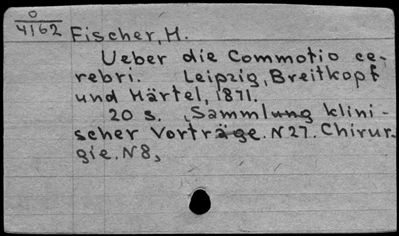 0
4162
Fischer, H.
Ueber die Commotio ce-
rebri. Leipzig, Breitkopf
und Härtel, 1871.
20 s. „Sammlung klini-
scher Vorträge. N 27. Chirur-
gie. N 8„